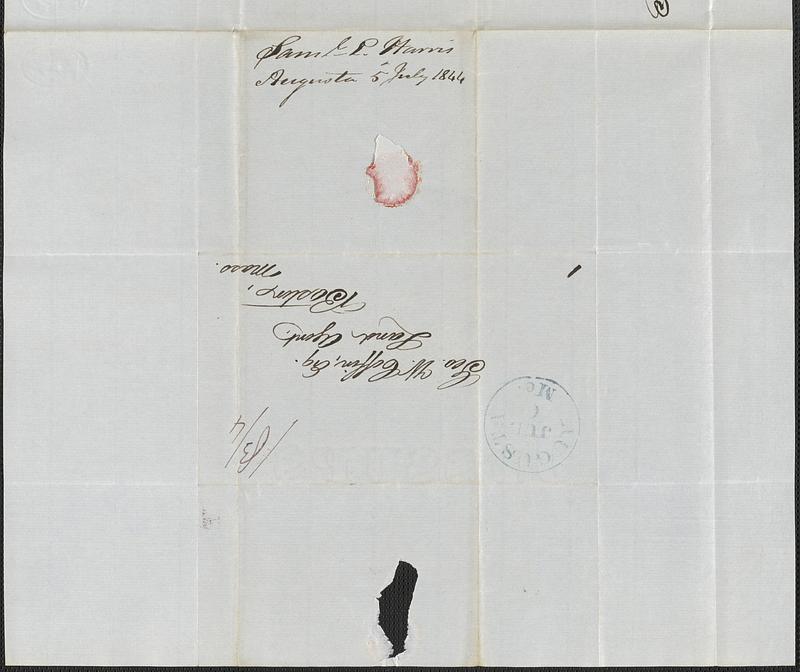 Saml P. Harris
Augusta 5 July 1844
Geo. W. Coffin, Esq.
Land Agent.
Boston,
Mass.
AUGUSTA
JUL
Me.